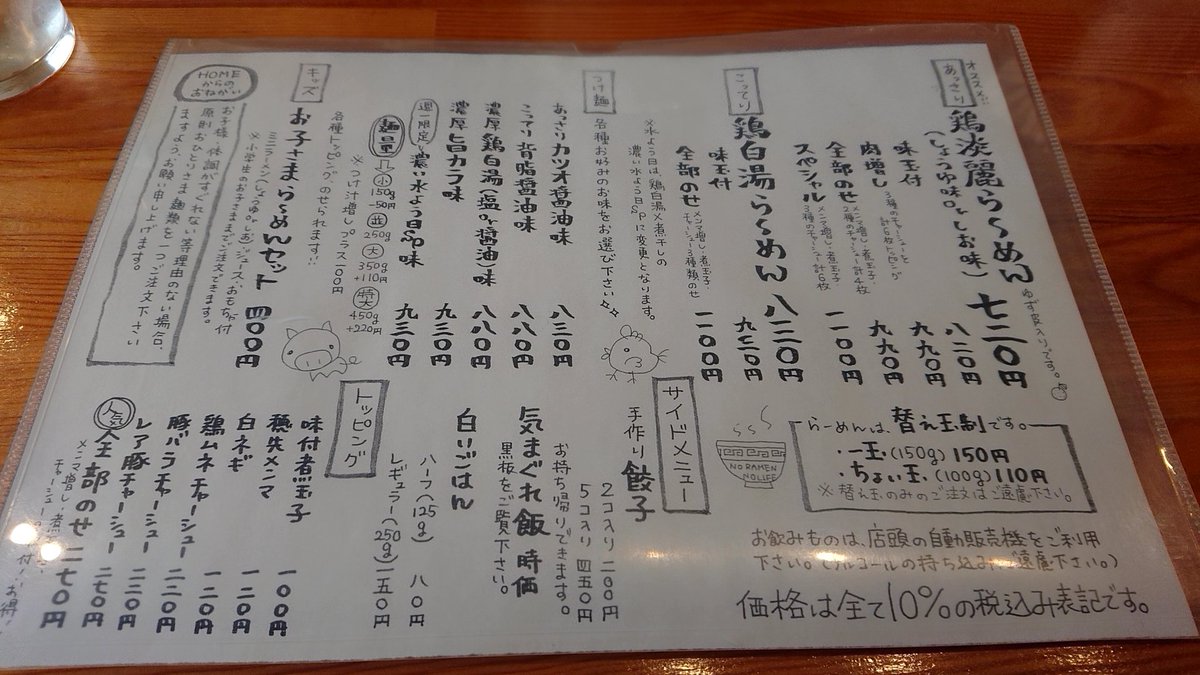 オススメ!!
あっさり
鶏淡麗らーめん 七二〇円
(しょうゆ味 or しお味)
ゆず皮入りです。
味玉付 八二〇円
肉増し 九九〇円
3種のチャーシューを
計6枚トッピング
全部のせ 九九〇円
メンマ増し・煮玉子・
2種のチャーシュー計4枚
スペシャル 一一〇〇円
メンマ増し・煮玉子・
3種のチャーシュー計6枚
こってり
鶏白湯らーめん 八二〇円
味玉付 九二〇円
全部のせ 一一〇〇円
メンマ増し・煮玉子・
チャーシュー3種類のせ
※水よう日は、鶏白湯×煮干しの
濃い水よう日に変更となります。
つけ麺
各種お好みのお味をお選び下さい
あっさりカツオ醤油味 八三〇円
こってり背脂醤油味 八八〇円
濃厚鶏白湯(塩or醤油)味 八八〇円
濃厚旨カラ味 九三〇円
週一限定 濃い水よう日味 九三〇円
麺量
小 150g -50円
並 250g
大 350g +110円
特大 450g +220円
※つけ汁増し プラス一〇〇円
各種トッピングのせられます!!
キッズ
お子さまらーめんセット 四〇〇円
ミニラーメン(しょうゆorしお)・ジュース・おもちゃ付
※小学生のお子さままでご注文できます。
HOMEからのおねがい
お子様・体調がすぐれない等理由のない場合、
原則おひとりさま麺類を一つご注文下さい
ますよう、お願い申し上げます。
らーめんは、替え玉制です。
・一玉(150g) 150円
・ちょい玉(100g) 110円
※替え玉のみのご注文はご遠慮下さい。
NO RAMEN
NO LIFE
お飲みものは、店頭の自動販売機をご利用
下さい。(アルコールの持ち込みご遠慮下さい。)
価格は全て10%の税込み表記です。
サイドメニュー
手作り餃子
2コ入り 二〇〇円
5コ入り 四五〇円
お持ち帰りできます。
気まぐれ飯 時価
黒板をご覧下さい。
白いごはん
ハーフ(125g) 八〇円
レギュラー(250g) 一五〇円
トッピング
味付煮玉子 一〇〇円
穂先メンマ 一二〇円
白ネギ 一二〇円
鶏ムネチャーシュー 一二〇円
豚バラチャーシュー 二二〇円
レア豚チャーシュー 二二〇円
人気 全部のせ 二七〇円
メンマ増し・煮
チャーシュー
付
お得!